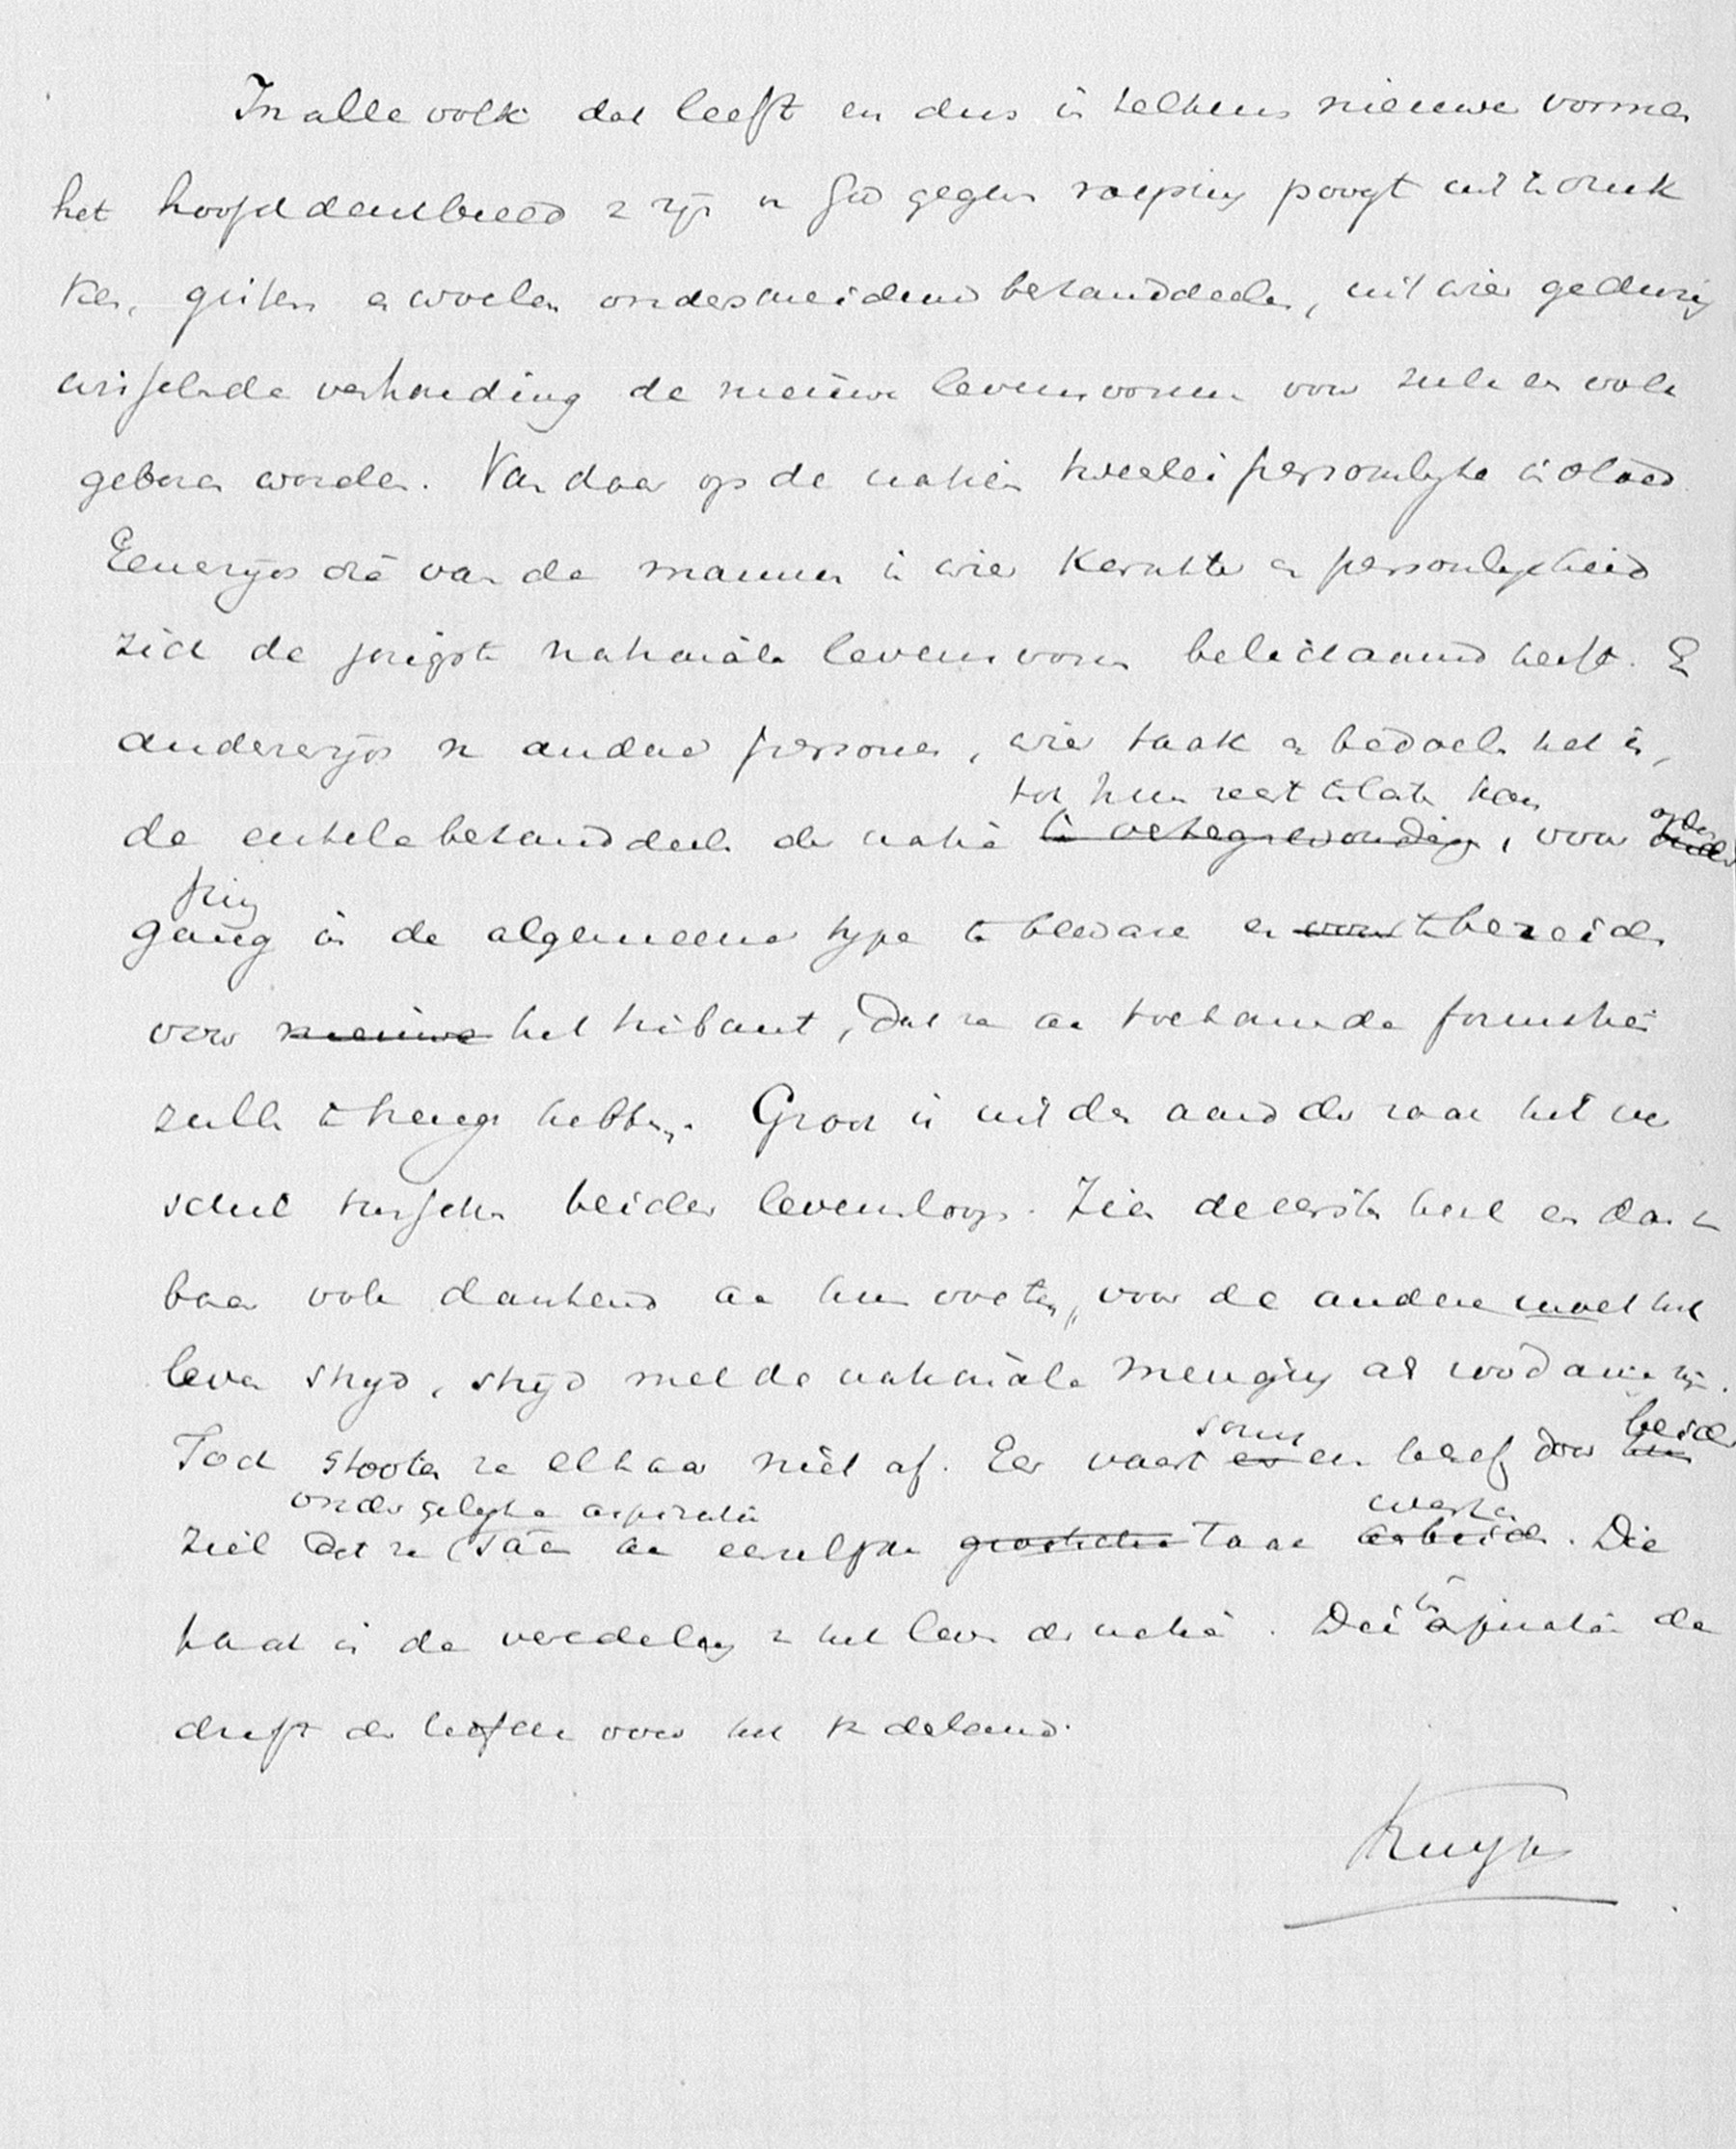 In alle volk dat leeft en dus in telkens nieuwe vormen
het hoofddenkbeeld zijn God gegeven roeping poogt uit te druk
ken, gisten en woelen onderscheidene bestanddeelen, uit wier gedurig
wisselende verhouding de nieuwe levensvormen voor zulk een volk
geboren worden. Van daar op de natien tweeërlei persoonlijke invloed
Eenerzijds die van de mannen in wier karakter en persoonlijkheid
zich de jongste nationale levensvorm belichaamd heeft. En
andererzijds andere personen, wier taak en bedoelen het is,
tot hun recht te laten komen
de enkele bestanddeelen der natie te vertegenwoordigen, voor onder
gang in de algemeene type te bewaren en voor te bereiden
voor nieuwe het hun dat ze aan toekomende
zullen hebben. Groot is uit den aard der zaak het ver
schil tusschen beider levensloop. Zien de eersten heel een dank
baar volk dankend aan hun voeten, voor de andere moet het
leven strijd, strijd met de nationale menging
soms beider
Toch stooten ze elkaar niet af. Een vaart en een besef door hun
onder gelijke aspiratie werken
ziel dat ze aan eenzelfde taak arbeiden. Die
taak is de veredeling het leven der natie. Die aspiratie de
drift der liefde voor het vaderland.
Kuyper